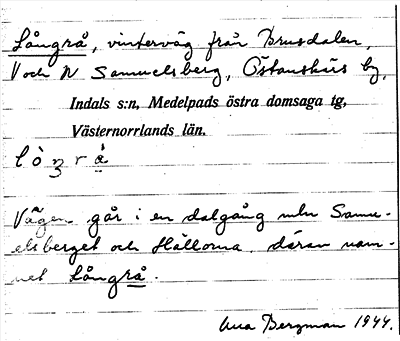 Långrå, vinterväg från Brusdalen,
V och N Samuelsberg, Östanskärs by,
Indals s:n, Medelpads östra domsaga tg,
Västernorrlands län.
lòŋrå̀
Vägen går i en dalgång mln Samu-
elsberget och Hällorna, därav nam-
net Långrå.
Bergman 1944.